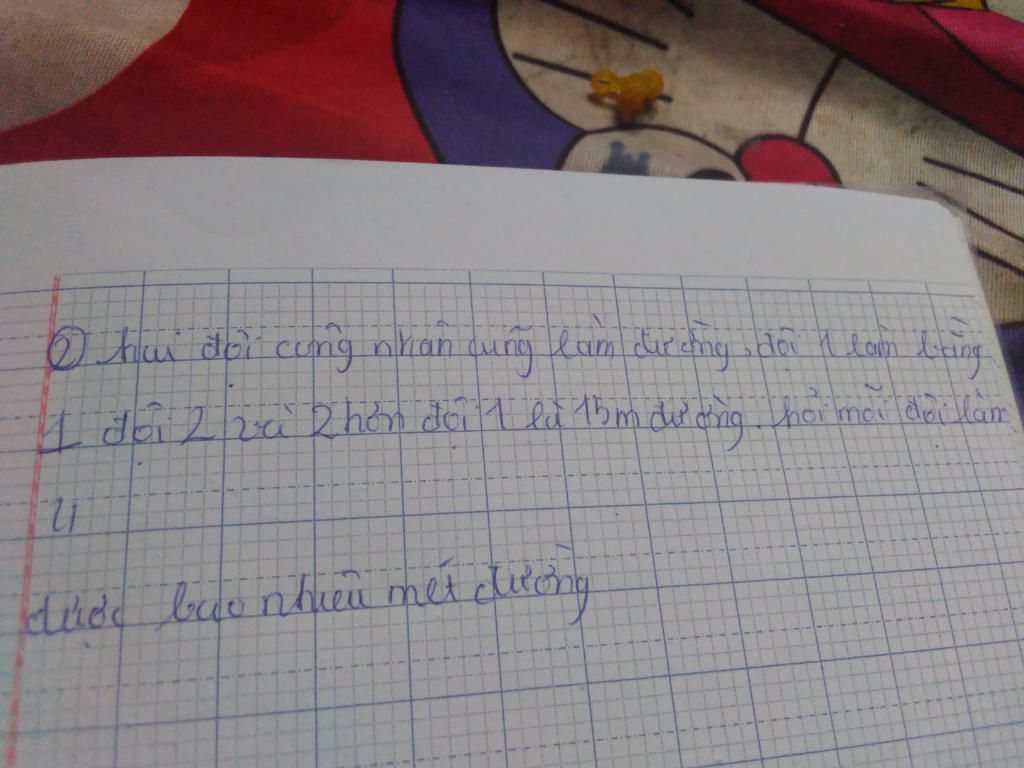 ② hai đội công nhân cùng làm đường, đội 1 làm bằng
1 đội 2 và 2 hơn đội 1 là 15m đường. hỏi mỗi đội làm
4
được bao nhiêu mét đường